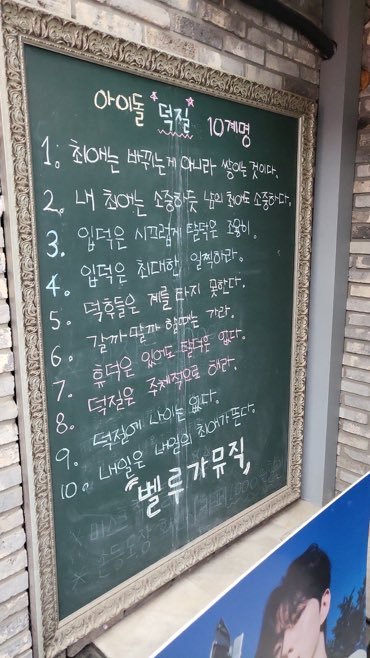 아이돌 "덕질" 10계명
1. 최애는 바뀌는게 아니라 쌓이는 것이다.
2. 내 최애는 소중하듯 남의 최애도 소중하다.
3. 입덕은 시끄럽게 탈덕은 조용히.
4. 입덕은 최대한 일찍하라.
5. 덕후들은 계를 타지 못한다.
6. 갈까 말까 할때는 가라.
7. 휴덕은 있어도 탈덕은 없다.
8. 덕질은 주체적으로 해라.
9. 덕질에 나이는 없다.
10. 내일은 내일의 최애가 뜬다.
"벨루가뮤직"